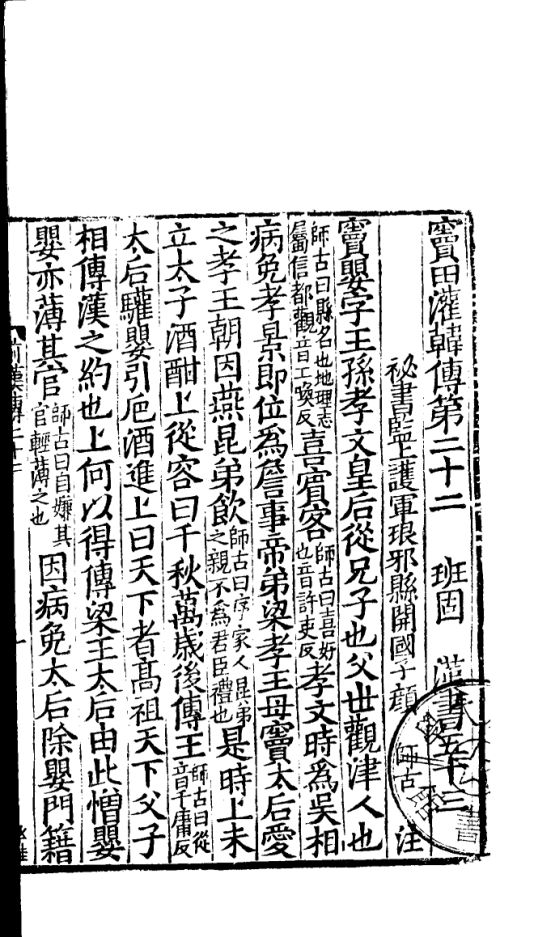 竇田灌韓傳第二十二　班固　漢書五十二
祕書監上護軍琅邪縣開國子顏　師古　注
竇嬰字王孫孝文皇后從兄子也父世觀津人也
師古曰縣名也地理志屬信都觀音工喚反喜賓客師古曰喜好也音許吏反孝文時爲吳相
病免孝景即位爲詹事帝弟梁孝王母竇太后愛
之孝王朝因燕昆弟飲師古曰序家人昆弟之親不爲君臣禮也是時上未
立太子酒酣上從容曰千秋萬歲後傳王師古曰從音千庸反
太后驩嬰引巵酒進上曰天下者高祖天下父子
相傳漢之約也上何以得傳梁王太后由此憎嬰
嬰亦薄其官師古曰自嫌其官輕薄之也因病免太后除嬰門籍